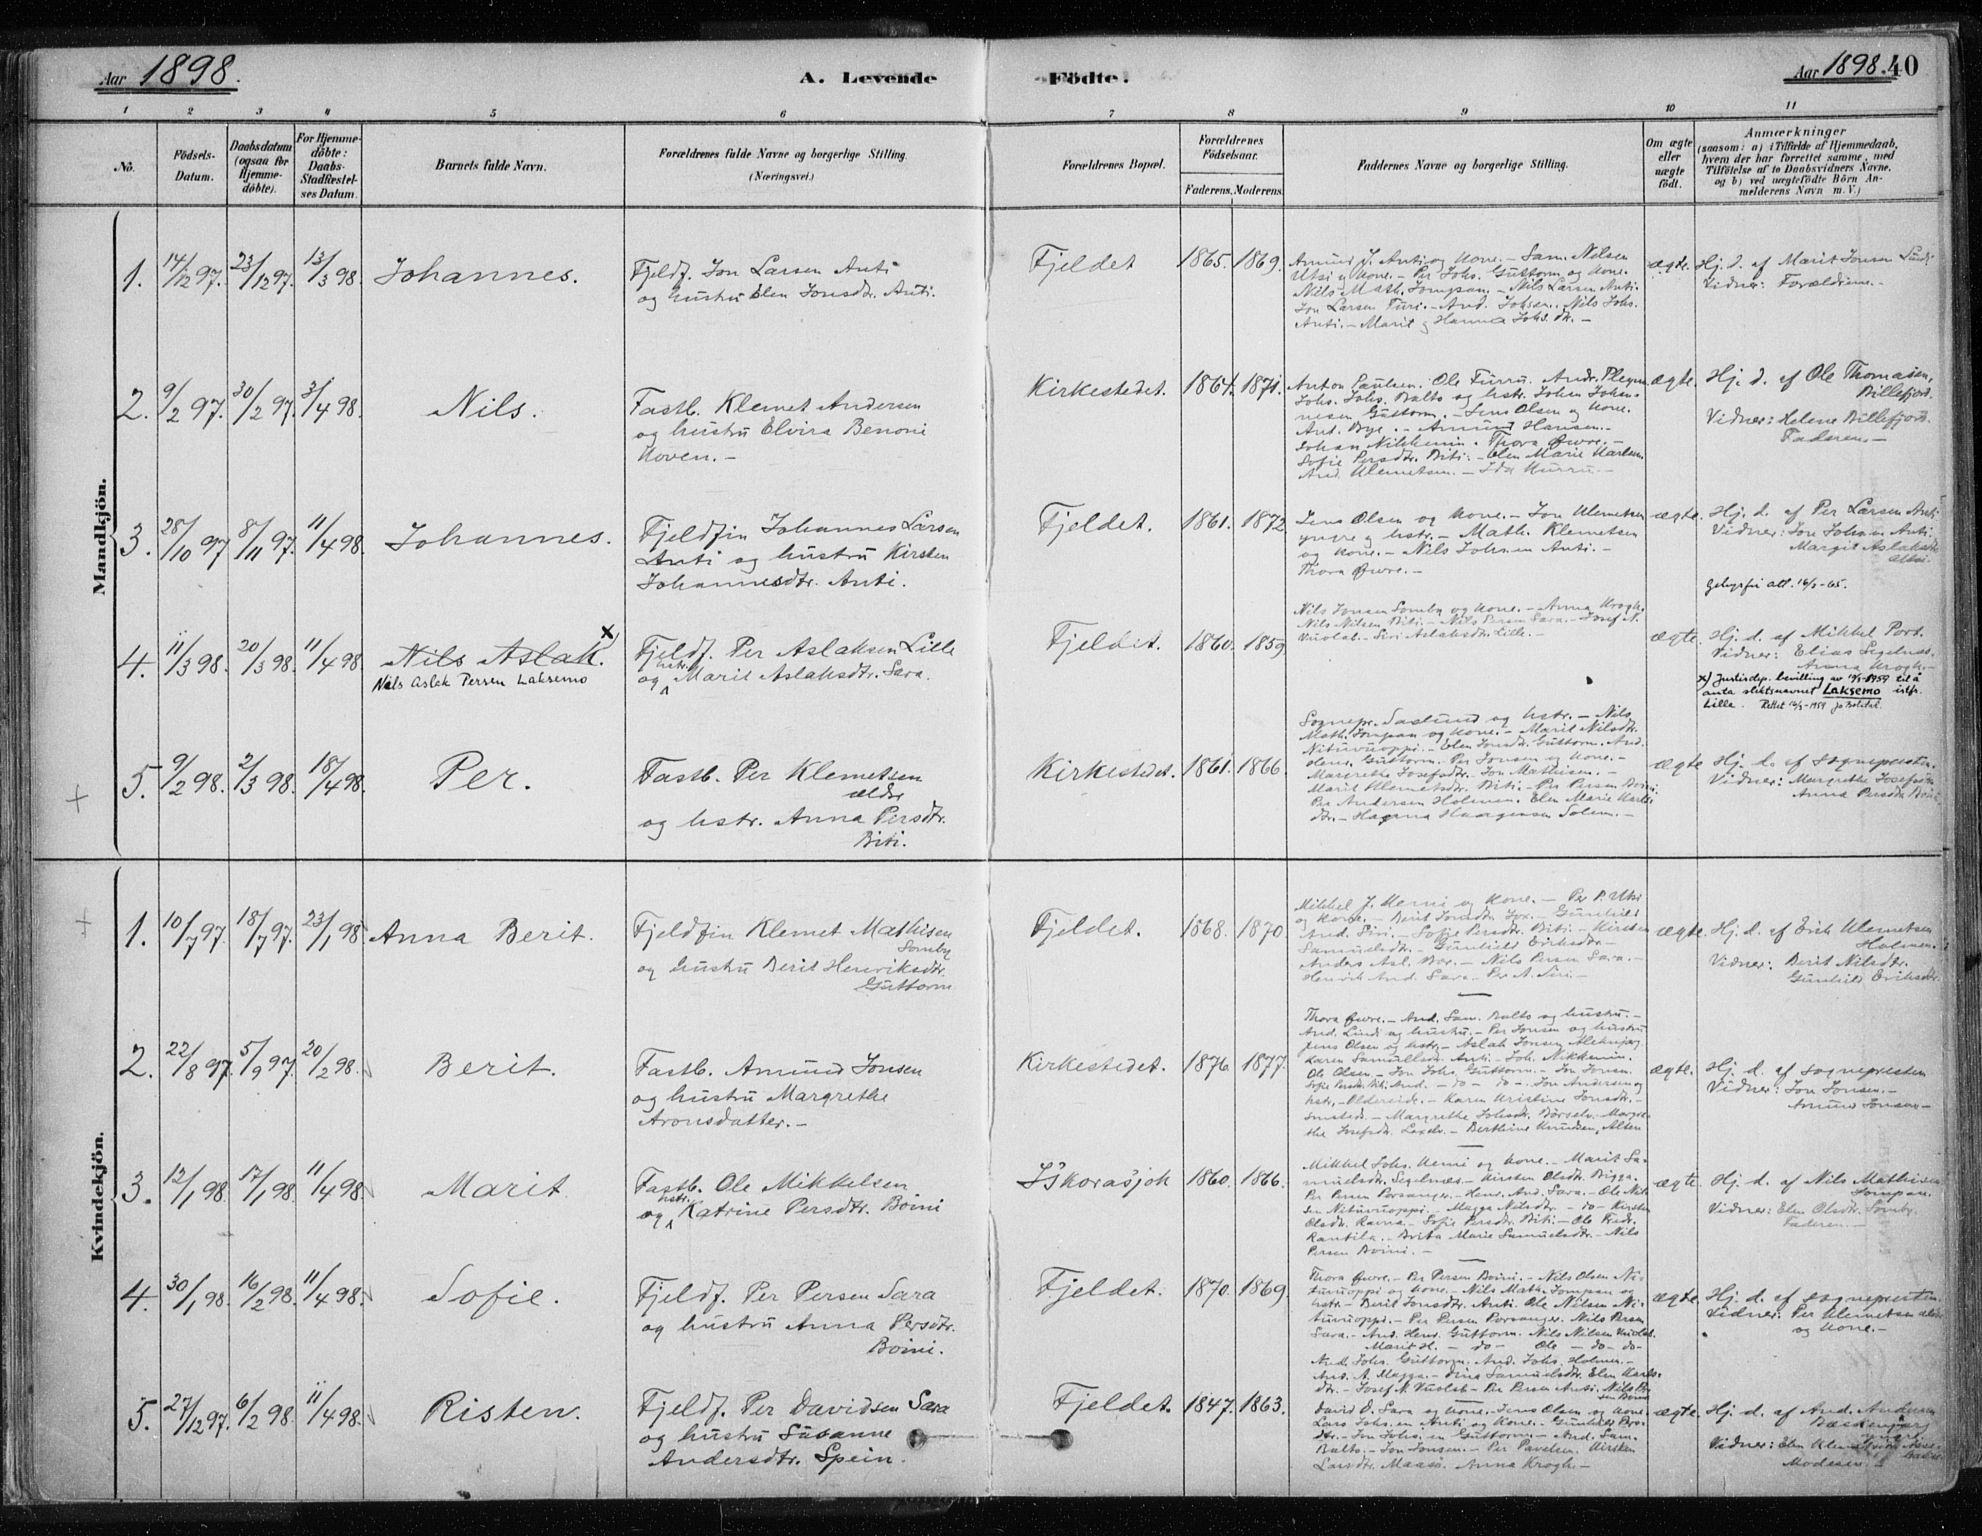 Aar 1898.
A. Levende Födte.
Aar 1898. 40
1 2 3 4 5 6 7 8 9 10 11
No.
Födsels-
Datum.
Daabsdatum
(ogsaa for
Hjemme-
döbte).
For Hjemme-
döbte:
Daabs-
Stadfæstel-
ses Datum.
Barnets fulde Navn.
Forældrenes fulde Navne og borgerlige Stilling.
(Næringsvei.)
Forældrenes Bopæl.
Forældrenes
Födselsaar.
Faderens. Moderens.
Faddernes Navne og borgerlige Stilling.
Om ægte
eller
uægte
födt.
Anmærkninger
(saasom: a) i Tilfælde af Hjemmedaab,
hvem der har forrettet samme, med
Tilföielse af to Daabsvidners Navne,
og b) ved uægtefödte Börn An-
melderens Navn m. V.)
Mandkjön.
1. 14/12 97. 23/12 97. 13/3 98. Johannes.
Fjeldf. Jon Larsen Anti
og hustru Elen Jonsdtr. Anti.
Fjeldet 1865. 1869.
Amund J. Anti og Kone. – Sam. Nilsen
Utsi og Kone. – Per Johs. Guttorm og Kone.
Nils Math. Sompan. – Nils Larsen Anti.
Anti. – Marit og Hanna Johs. dtr. –
ægte.
Hj. d. af Marit Jonsen
Vidner: Forældrene. –
2. 9/2 97. 30/2 97. 3/4 98. Nils.
Fastb. Klemet Andersen
og hustru Elvira Benoni
Koven. –
Kirkestedet. 1864. 1871.
Anton Paulsen. Ole Furru. Andr.
Johs. Johs. Balto og hstr. Johan Johan-
nesen Guttorm. – Jens Olsen og Kone.
And. Bye. – Amund Hansen. –
Johan Nikkinin. Thora Øwre. –
Sofie Persdtr. Biti. – Elen Marie Karlsen.
And. Klemetsen. – Ida Kurru. –
ægte.
Hj. d. af Ole Thomasen,
Billefjord.
Vidner: Helene Billefjord.
Faderen. –
3. 28/10 97 8/11 97. 11/4 98. Johannes.
Fjeldfin Johannes Larsen
Anti og hustru Kirsten
Johannesdtr. Anti.
Fjeldet. 1861. 1872
Jens Olsen og Kone. – Jon Klemetsen
yngre og hstr. – Math. Klemetsen
og Kone. – Nils Johsen Anti. –
Thora Øwre. –
ægte.
Hj. d. af Per Larsen Anti
Vidner: Jon Johsen Anti.
Margit Aslaksdtr.
4. 11/3 98. 20/3 98. 11/4 98. Nils Aslak. x
Nils Aslak Persen Laksemo
Fjeldf. Per Aslaksen Lille
og hstr. Marit Aslaksdtr. Sara.
Fjeldet. 1860. 1859
Nils Jonsen Somby og Kone. – Anna Krogh.
Nils Nilsen Biti. – Nils Persen Sara. – Josef N.
Vuolab. – Siri Aslaksdtr. Lille. –
ægte.
Hj. d. af Mikkel Port.
Vidner: Elias Segelnæs,
Anna Krogh. –
x) Justisdep. bevilling av 1959 til å
anta slektsnavnet Laksemo istf.
Lille.
5. 9/2 98. 2/3 98. 18/4 98. Per.
Fastb. Per Klemetsen
ældre
og hstr. Anna Persdtr.
Biti.
Kirkestedet. 1861. 1866.
Sognepr. Saxlund og hstr. – Nils
Math. Sompan og Kone. – Marit Nilsdtr.
Nitovuoppi. – Elen Jonsdtr. Guttorm. And.
Henr. Guttorm. Per Jonsen og Kone. –
Margrethe Josefsdtr. Jon Mathisen. –
Marit Klemetsdtr. Biti. – Per Persen Boini.
Per Andersen Holmen. Elen Marie Karls-
dtr. – Hagena Haagensen Solem. –
ægte
Hj. d. af sognepresten.
Vidner: Margrethe Josefsdtr.
Anna Persdtr. Boini
Kvindekjön.
1. 10/7 97. 18/7 97. 23/1 98 Anna Berit.
Fjeldfin Klemet Mathisen
Somby
og hustru Berit Henriksdtr.
Guttorm
Fjeldet. 1868. 1870
Mikkel J. Kemi og Kone. – Per P. Utsi
And. Siri. – Sofie Persdtr. Biti. – Kirsten
Samuelsdtr. – Gunhild Eriksdtr. –
Anders Asl. Bær. – Nils Persen Sara. –
Henrik And. Sara. Per A. Siri. –
ægte.
Hj. d. af Erik Klemetsen
Holmen.
Vidner: Berit Nilsdtr.
Gunhild Eriksdtr.
2. 22/8 97. 5/9 97. 20/2 98. Berit.
Fastb. Amund Jonsen
og hustru Margrethe
Aronsdatter. –
Kirkestedet. 1876. 1877.
Thora Øwre. – And. Sam. Balto og hustru. –
And. Lindi og hustru. – Per Jonsen og hustru
Jens Olsen og hstr. – Aslak Jonsen
Karen Samuelsdr. Anti. – Joh. Nikkinin.
Ole Olsen. – Jon Johs. Guttorm. – Jon Jonsen.
hstr. – Oldereide. – Karen Kristine Jonsdtr. –
Smsted. – Margrethe Johsdtr. Börselv. – Margre-
the Josefsdtr. Laxelv. – Berthine Knudsen, Alten
ægte.
Hj. d. af sognepresten
Vidner: Jon Jonsen. –
Amund Jonsen –
3. 12/1 98. 17/1 98. 11/4 98. Marit
Fastb. Ole Mikkelsen
og hstr. Katrine Persdtr. Boini
Iškorasjok 1860. 1866.
Mikkel Johs. Kemi og Kone. – Marit Sa-
muelsdtr. Segelnæs. – Kirsten Olsdtr. Bigga.
Per Persen Porsanger. – Henr. And. Sara. – Ole Nil-
sen Nitovuoppi. – Magga Nilsdtr. – do – Kirsten
Olsdtr. Ravna – Sofie Persdtr. Biti – Ole Fredr.
Rantila. – Brita Marie Samuelsdtr. – Nils
Persen Boini. –
ægte.
Hj. d. af Nils Mathisen
Sompan.
Vidner: Elen Olsdtr. Somby.
Faderen. –
4. 30/1 98. 16/2 98. 11/4 98. Sofie.
Fjeldf. Per Persen Sara
og hustru Anna Persdtr.
Boini.
Fjeldet. 1870. 1869
Thora Øwre. – Per Persen Boini. – Nils Olsen Ni-
tuvuoppi og Kone. – Nils Math. Sompan og
hstr. – Berit Jonsdtr. Anti. Ole Nilsen Ni-
tuvuoppi. – Per Persen Porsanger. Nils Persen
Sara. – And. Henr. Guttorm. Nils Nilsen Vuolab.
Marit H. – do – Ole – do – do –
And. Johs. Guttorm. And. Johs. Holmen. –
ægte.
Hj. d. af sognepresten.
Vidner: Per Klemetsen ældre
og Kone. –
5. 27/12 97. 6/2 98. 11/4 98. Risten.
Fjeldf. Per Davidsen Sara
og hustru Susanne
Andersdtr. Spein.
Fjeldet. 1847. 1863.
Ans. A. Magga. – Dina Samuelsdtr. Elen Karls-
dtr. – Josef N. Vuolab – Per Persen Anti. Nils Per-
sen Boini
David D. Sara og Kone. – Jens Olsen og Kone.
Lars Johs.en Anti og Kone. – Gunhild Prs.
dtr. – Jon Johs.en Guttorm. – And. Sam.
Balto. – Jon Jonsen. – Per Pavelsen. Kirsten
Larsdtr. Maasø. Anna Krogh. –
ægte.
Hj. d. af And. Andersen
yngre
Vidner: Elen
Modesen.